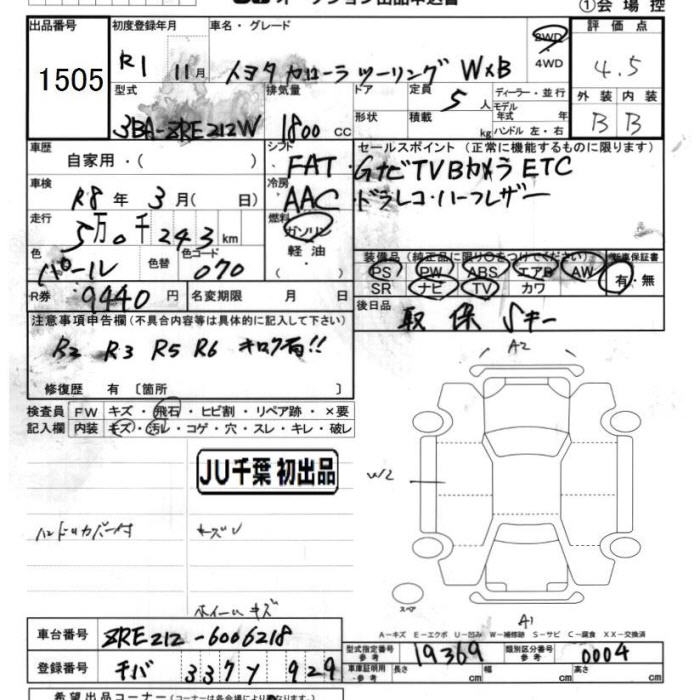 オークション出品申込書
①会場控
出品番号 初度登録年月 車名・グレード 2WD 4WD 評価点
1505 R1 11月 トヨタ カローラツーリング W×B 4.5
型式 排気量 ドア 定員 5人 ディーラー・並行 モデル 年式 年式 外装 内装
3BA-ZRE212W 1800cc 形状 積載 kg ハンドル 左・右 B B
車歴 シフト セールスポイント(正常に機能するものに限ります)
自家用・( ) FAT ・Gナビ TV Bカメラ ETC
車検 冷房 ・ドラレコ・ハーフレザー
R8年3月( 日) AAC
走行 燃料
5万0千243km ガソリン
色 色替 色コード 軽油
パール 070 ・( )
装備品(純正品に限り○をつけてください) 新車保証書
PS PW ABS エアB AW 有・無
SR ナビ TV カワ
R券 9440円 名変期限 月 日
後日品 取 保 Sキー
注意事項申告欄(不具合内容等は具体的に記入して下さい)
R2 R3 R5 R6 キロク有!!
修復歴 有〔箇所
検査員 FW キズ・飛石・ヒビ割・リペア跡・×要
記入欄 内装 キズ・汚レ・コゲ・穴・スレ・キレ・破レ
A2
JU千葉 初出品
W2
ハンドルカバー付
キズ
ホイールキズ
スペア
A1
A-キズ E-エクボ U-凹み W-補修跡 S-サビ C-腐食 XX-交換済
車台番号 ZRE212-6006218
型式指定番号 参考 19369 類別区分番号 参考 0004
登録番号 チバ 337 Y 929
車庫証明用 参考 長さ cm 幅 cm 高さ cm
希望出品コーナー